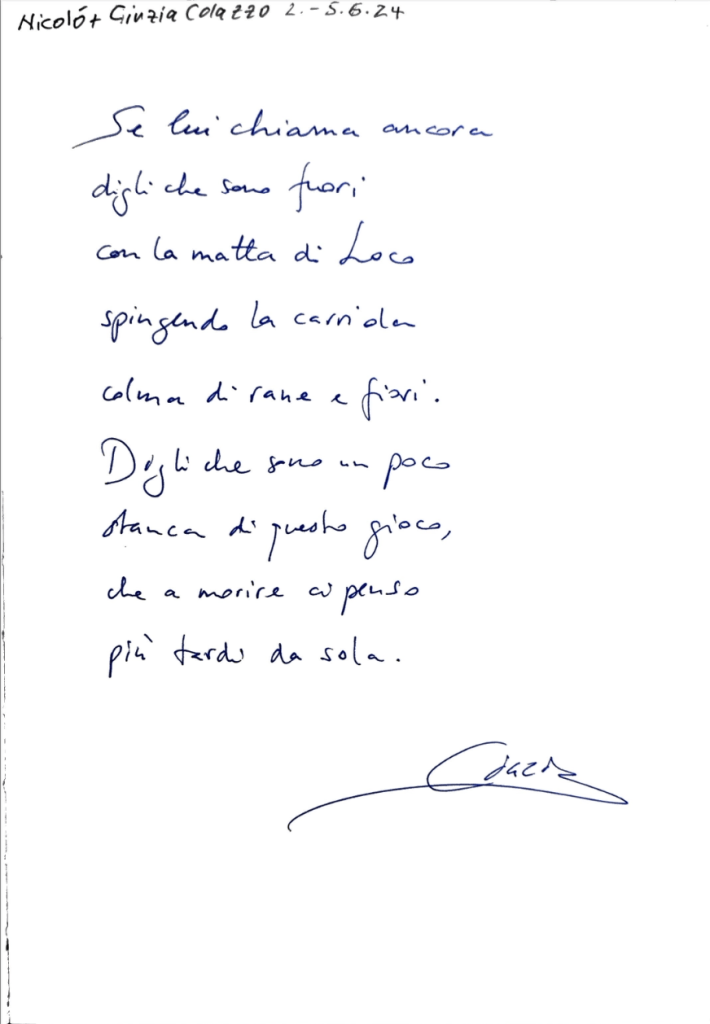 Nicoló + Ginzia Colazzo 2.-5.6.24
Se lui chiama ancora
digli che sono fuori
con la matta di Loco
spingendo la carriola
colma di rane e fiori.
Digli che sono un poco
stanca di questo gioco,
che a morire ci penso
più tardi da sola.